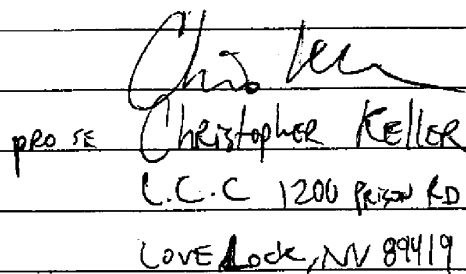 Chris Kell
pro se Christopher Keller
L.C.C 1200 Prison RD
Lovelock, NV 89419